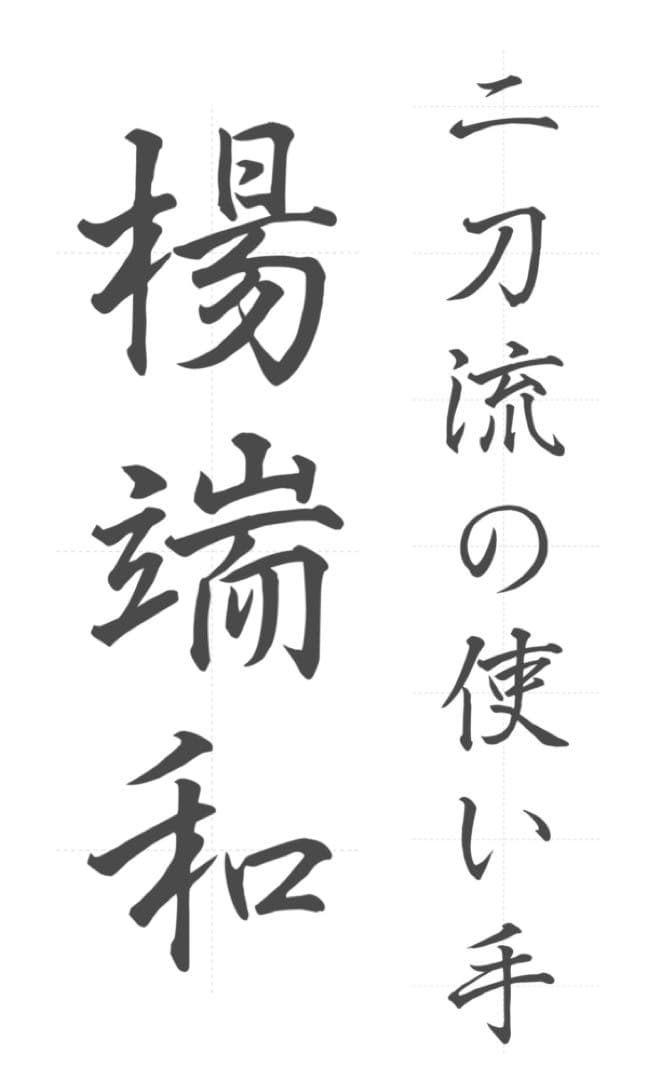 二刀流の使い手
楊端和